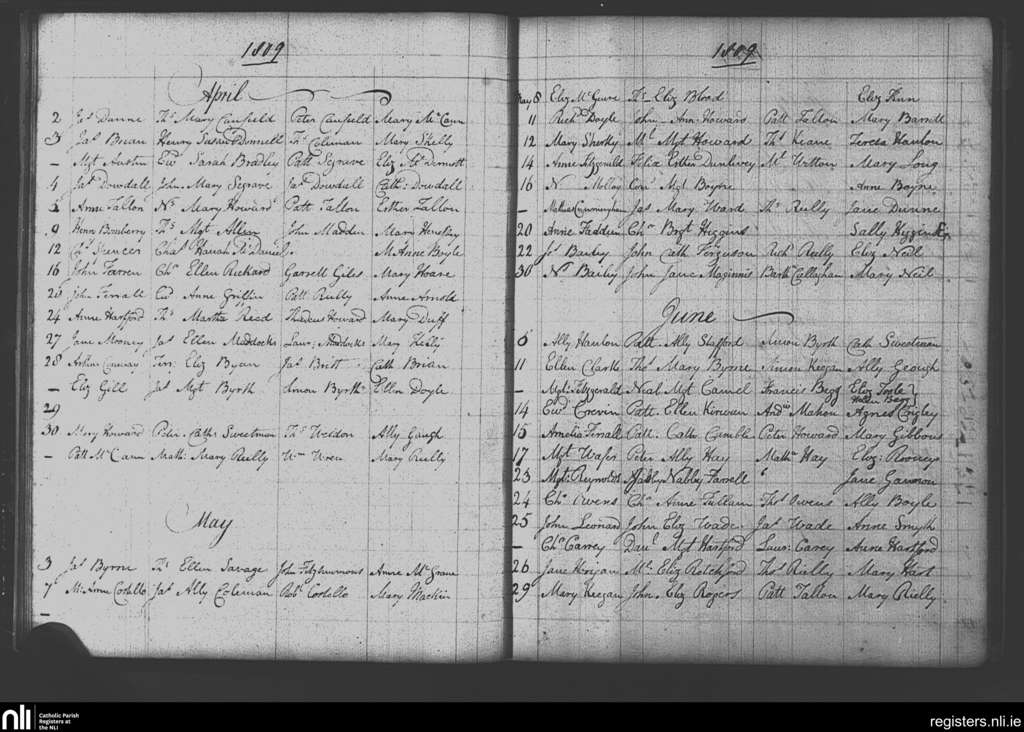 1809
April
2 Jas Dunne Ths Mary Canfield Peter Canfield Mary McCann
3 Jas Brian Henry Susan O'Donnell Ths Coleman Mary Skelly
— Mgt Austin Edd Sarah Bradley Patt Segrave Eliz McDermott
4 Jas Dowdall John Mary Segrave Jas Dowdall Cath: Dowdall
5 Anne Tallon Ns Mary Howard Patt Tallon Esther Tallon
9 Henn Bowberry Ths Mgt Allen John Madden Mary
12 Chs Spencer Chas Hanah McDaniel M Anne Boyle
16 John Farren Chs Ellen Rickard Garrett Giles Mary Hoare
20 John Ferrall Edd Anne Griffin Patt Rielly Anne Arnold
24 Anne Hartford Ths Martha Reed Thadeus Howard Mary Duff
27 Jane Mooney Jas Ellen Maddocks Laur: Maddocks Mary
28 Arthur Conway Ter: Eliz Byan Jas Britt Cath Brian
— Eliz Gill Jas Mgt Byrth Simon Byrth Ellen Doyle
29
30 Mary Howard Peter Cath: Sweetman Ths Weldon Ally Gaugh
— Patt McCann Math: Mary Rielly Wm Wren Mary Rielly
May
3 Jas Byrne Ths Ellen Savage John Fitzsimmons Anne McGrane
7 M: Anne Costello Jas Ally Coleman Robt Costello Mary Mackin
—
1809
May 8 Eliz McGuire Ths Eliz Blood Eliz Finn
11 Richd Boyle John Ann Howard Patt Fallon Mary Barrett
12 Mary Sherky Ml Mgt Howard Ths Keane Teresa Hanlon
14 Anne Fitzgerald Felix Esther Dunlevey Ml Witton Mary Long
16 N Molloy Cors Mgt Boyne Anne Boyne
— Mathew Cunningham Jas Mary Ward Ths Rielly Jane Dunne
20 Anne Fadden Chs Bryt Higgins Sally Higgins
22 Js Bailey John Cath Ferguson Richd Reilly Eliz Neil
30 Ns Bailey John Jane Maginnis Barth Callaghan Mary Neil
June
5 Ally Hanlon Patt Ally Stafford Simon Byrth Cath Sweetman
11 Ellen Clark Ths Mary Byrne Simon Keegan Ally Geough
— Mgt: Fitzgerald Neal Mgt Camel Francis Begg Eliz Toole
Hellen Begg
14 Edd Crevin Patt Ellen Kirwan Andw Mahon Agnes Quigley
15 Amelia Ferrall Patt: Cath Camble Peter Howard Mary Gibbons
17 Mgt Wafer Peter Ally Hay Mathw Hay Eliz: Rooney
23 Mgt: Reynolds Nabby Farrell Jane Gannon
24 Chs Owens Chs Anne Fullam Ths Owens Ally Boyle
25 John Leonard John Eliz Wade Jas Wade Anne Smyth
— Chs Carrey Danl Mgt Hartford Laur: Carey Anne Hartford
26 Jane Horgan Ml Eliz Rotchford Ths Rielly Mary Hart
29 Mary Keegan John Eliz Rogers Patt Tallon Mary Rielly
nli Catholic Parish
Registers at
the NLI
registers.nli.ie